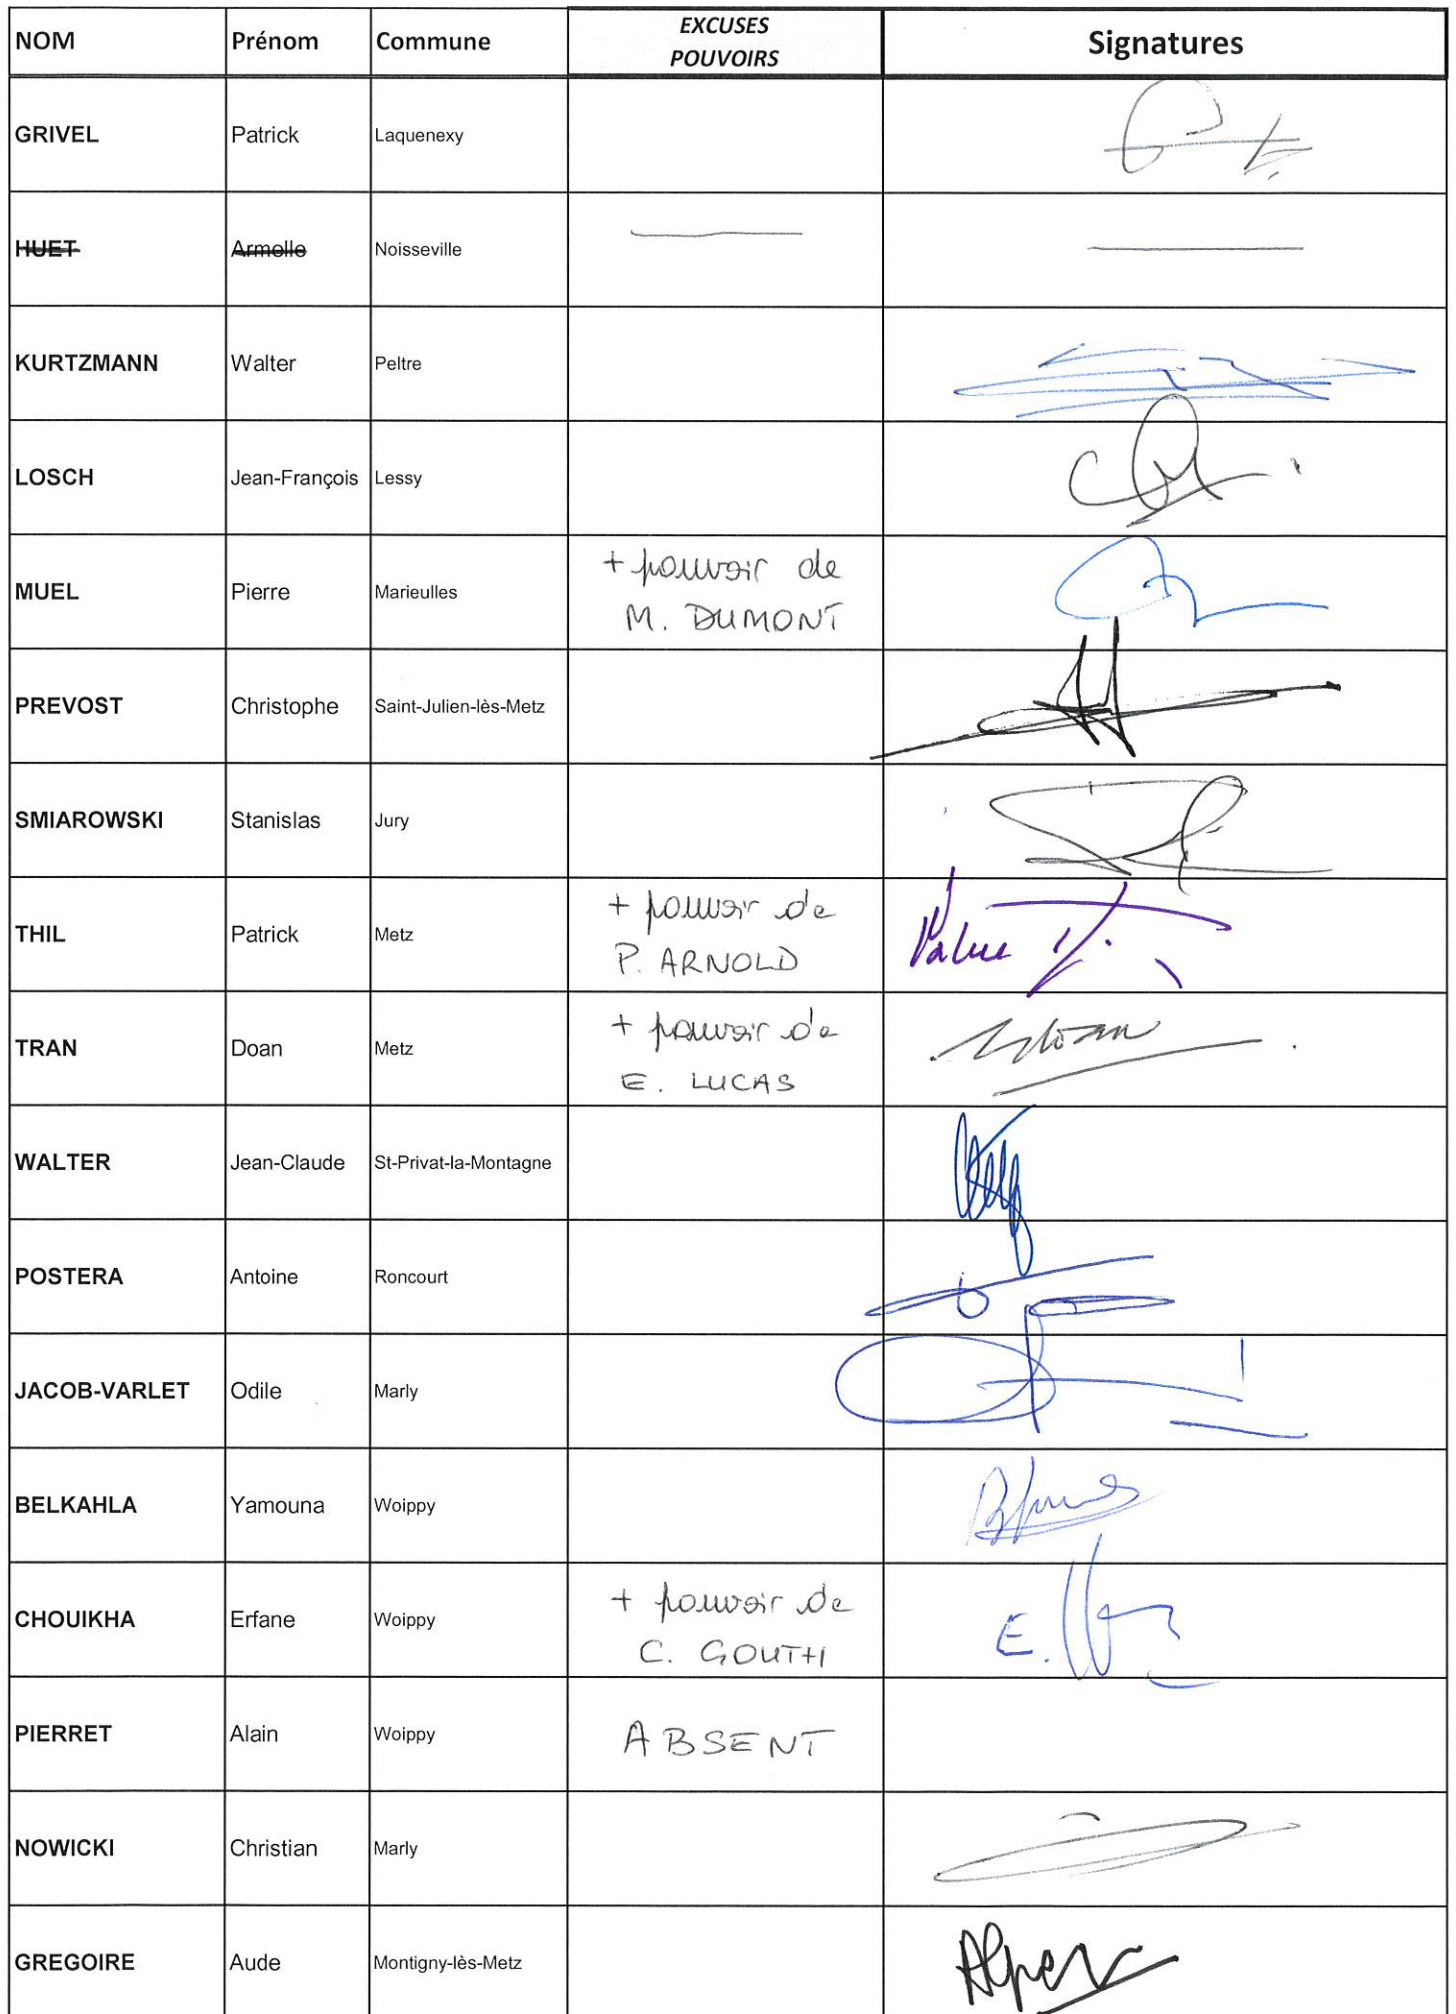 NOM Prénom Commune EXCUSES Signatures
POUVOIRS
GRIVEL Patrick Laquenexy
HUET Armelle Noisseville
KURTZMANN Walter Peltre
LOSCH Jean-François Lessy
MUEL Pierre Marieulles + pouvoir de
M. DUMONT
PREVOST Christophe Saint-Julien-lès-Metz
SMIAROWSKI Stanislas Jury
THIL Patrick Metz + pouvoir de
P. ARNOLD
TRAN Doan Metz + pouvoir de
E. LUCAS
WALTER Jean-Claude St-Privat-la-Montagne
POSTERA Antoine Roncourt
JACOB-VARLET Odile Marly
BELKAHLA Yamouna Woippy
CHOUIKHA Erfane Woippy + pouvoir de
C. GOUTH
PIERRET Alain Woippy ABSENT
NOWICKI Christian Marly
GREGOIRE Aude Montigny-lès-Metz